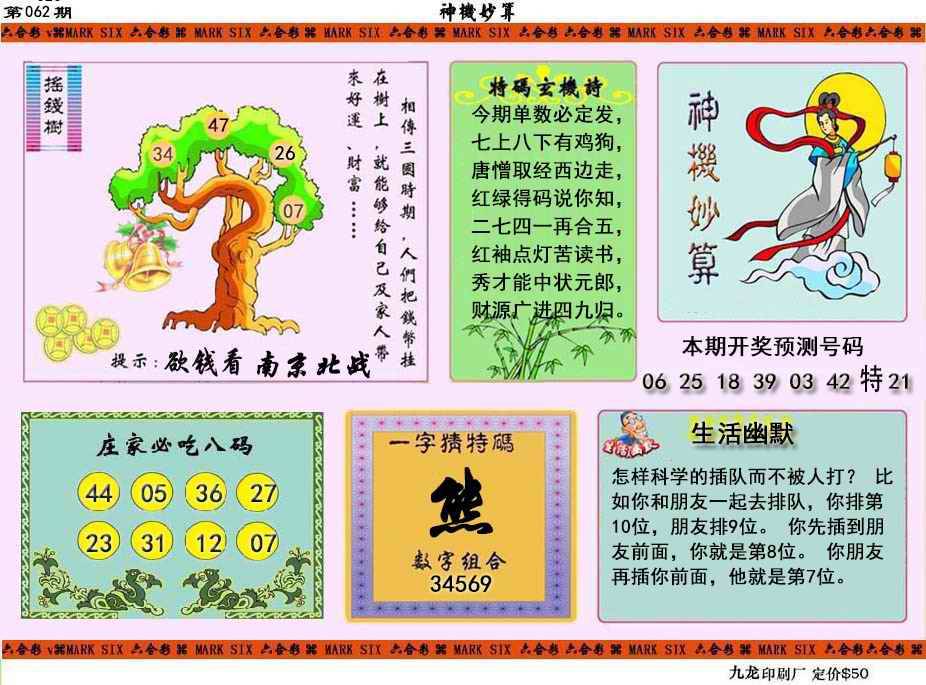 第062期
神機妙算
六合彩 MARK SIX 六合彩 MARK SIX 六合彩 MARK SIX 六合彩 MARK SIX 六合彩 MARK SIX 六合彩 MARK SIX 六合彩 六合彩
搖錢樹
相傳三國時期,人們把錢幣挂
在樹上,就能够给自己及家人帶
來好運、財富……
47
34
26
07
提示:欲钱看 南京北战
特碼玄機詩
今期单数必定发,
七上八下有鸡狗,
唐憎取经西边走,
红绿得码说你知,
二七四一再合五,
红袖点灯苦读书,
秀才能中状元郎,
财源广进四九归。
神機妙算
本期开奖预测号码
06 25 18 39 03 42 特 21
庄家必吃八码
44 05 36 27
23 31 12 07
一字猜特碼
熊
数字组合
34569
生活幽默
生活幽默
怎样科学的插队而不被人打? 比
如你和朋友一起去排队,你排第
10位,朋友排9位。 你先插到朋
友前面,你就是第8位。 你朋友
再插你前面,他就是第7位。
六合彩 MARK SIX 六合彩 MARK SIX 六合彩 MARK SIX 六合彩 MARK SIX 六合彩 MARK SIX 六合彩 MARK SIX 六合彩 六合彩
九龙印刷厂 定价$50